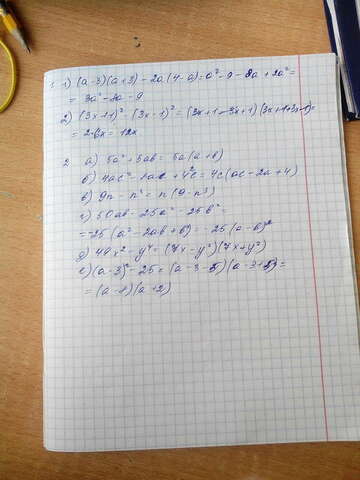 1 1) (a-3)(a+3) - 2a(4-a) = a² - 9 - 8a + 2a² =
= 3a² - 8a - 9
2) (3x+1)² - (3x-1)² = (3x+1-3x+1)(3x+1+3x-1) =
= 2·6x = 12x
2 а) 5a² + 5ab = 5a(a+b)
б) 4ac² - 8ac + 4²c = 4c(ac-2a+4)
в) 9n - n³ = n(9-n²)
г) 50ab - 25a² - 25b² =
= -25(a² - 2ab + b²) = -25(a-b)²
д) 49x² - y⁴ = (7x-y²)(7x+y²)
е) (a-3)² - 25 = (a-3-5)(a-3+5) =
= (a-8)(a+2)